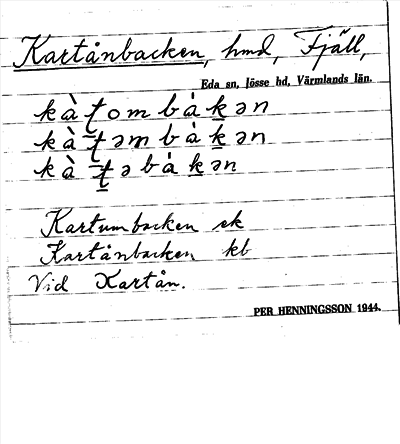 Kartånbacken, hmd, Fjäll,
Eda sn, Jösse hd, Värmlands län.
kàt̠ombák̠ən
kàt̠əmbák̠ən
kàt̠əbák̠ən
Kartumbacken ek
Kartånbacken kb
Vid Kartån.
PER HENNINGSSON 1944.